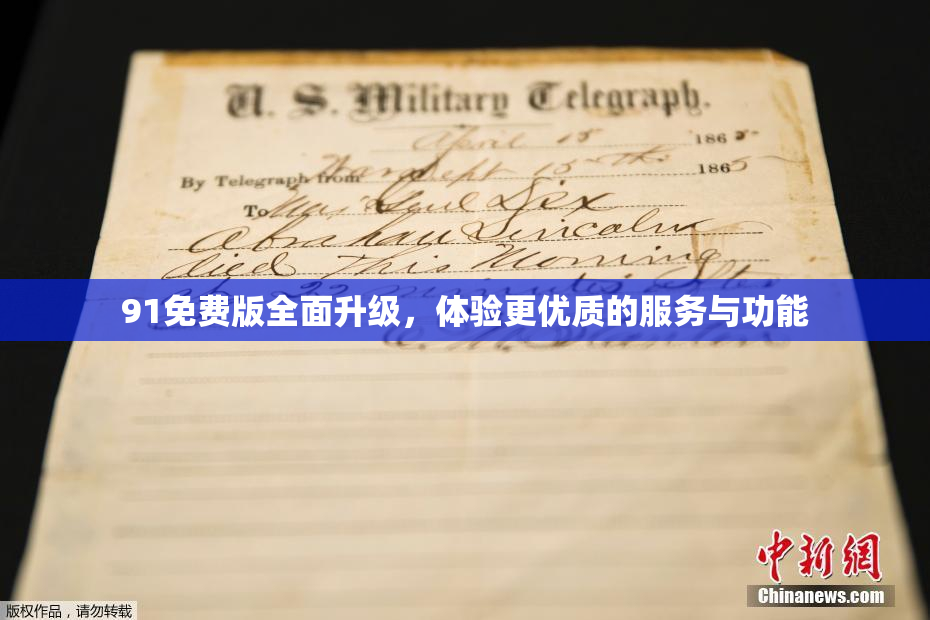 U. S. Military Telegraph.
April 15 1865
By Telegraph from War Dept 15th 1865
To Maj Genl Dix
Abraham Lincoln
died This Morning
at 22 minutes after
91免费版全面升级，体验更优质的服务与功能
中新網
Chinanews.com
版权作品，请勿转载